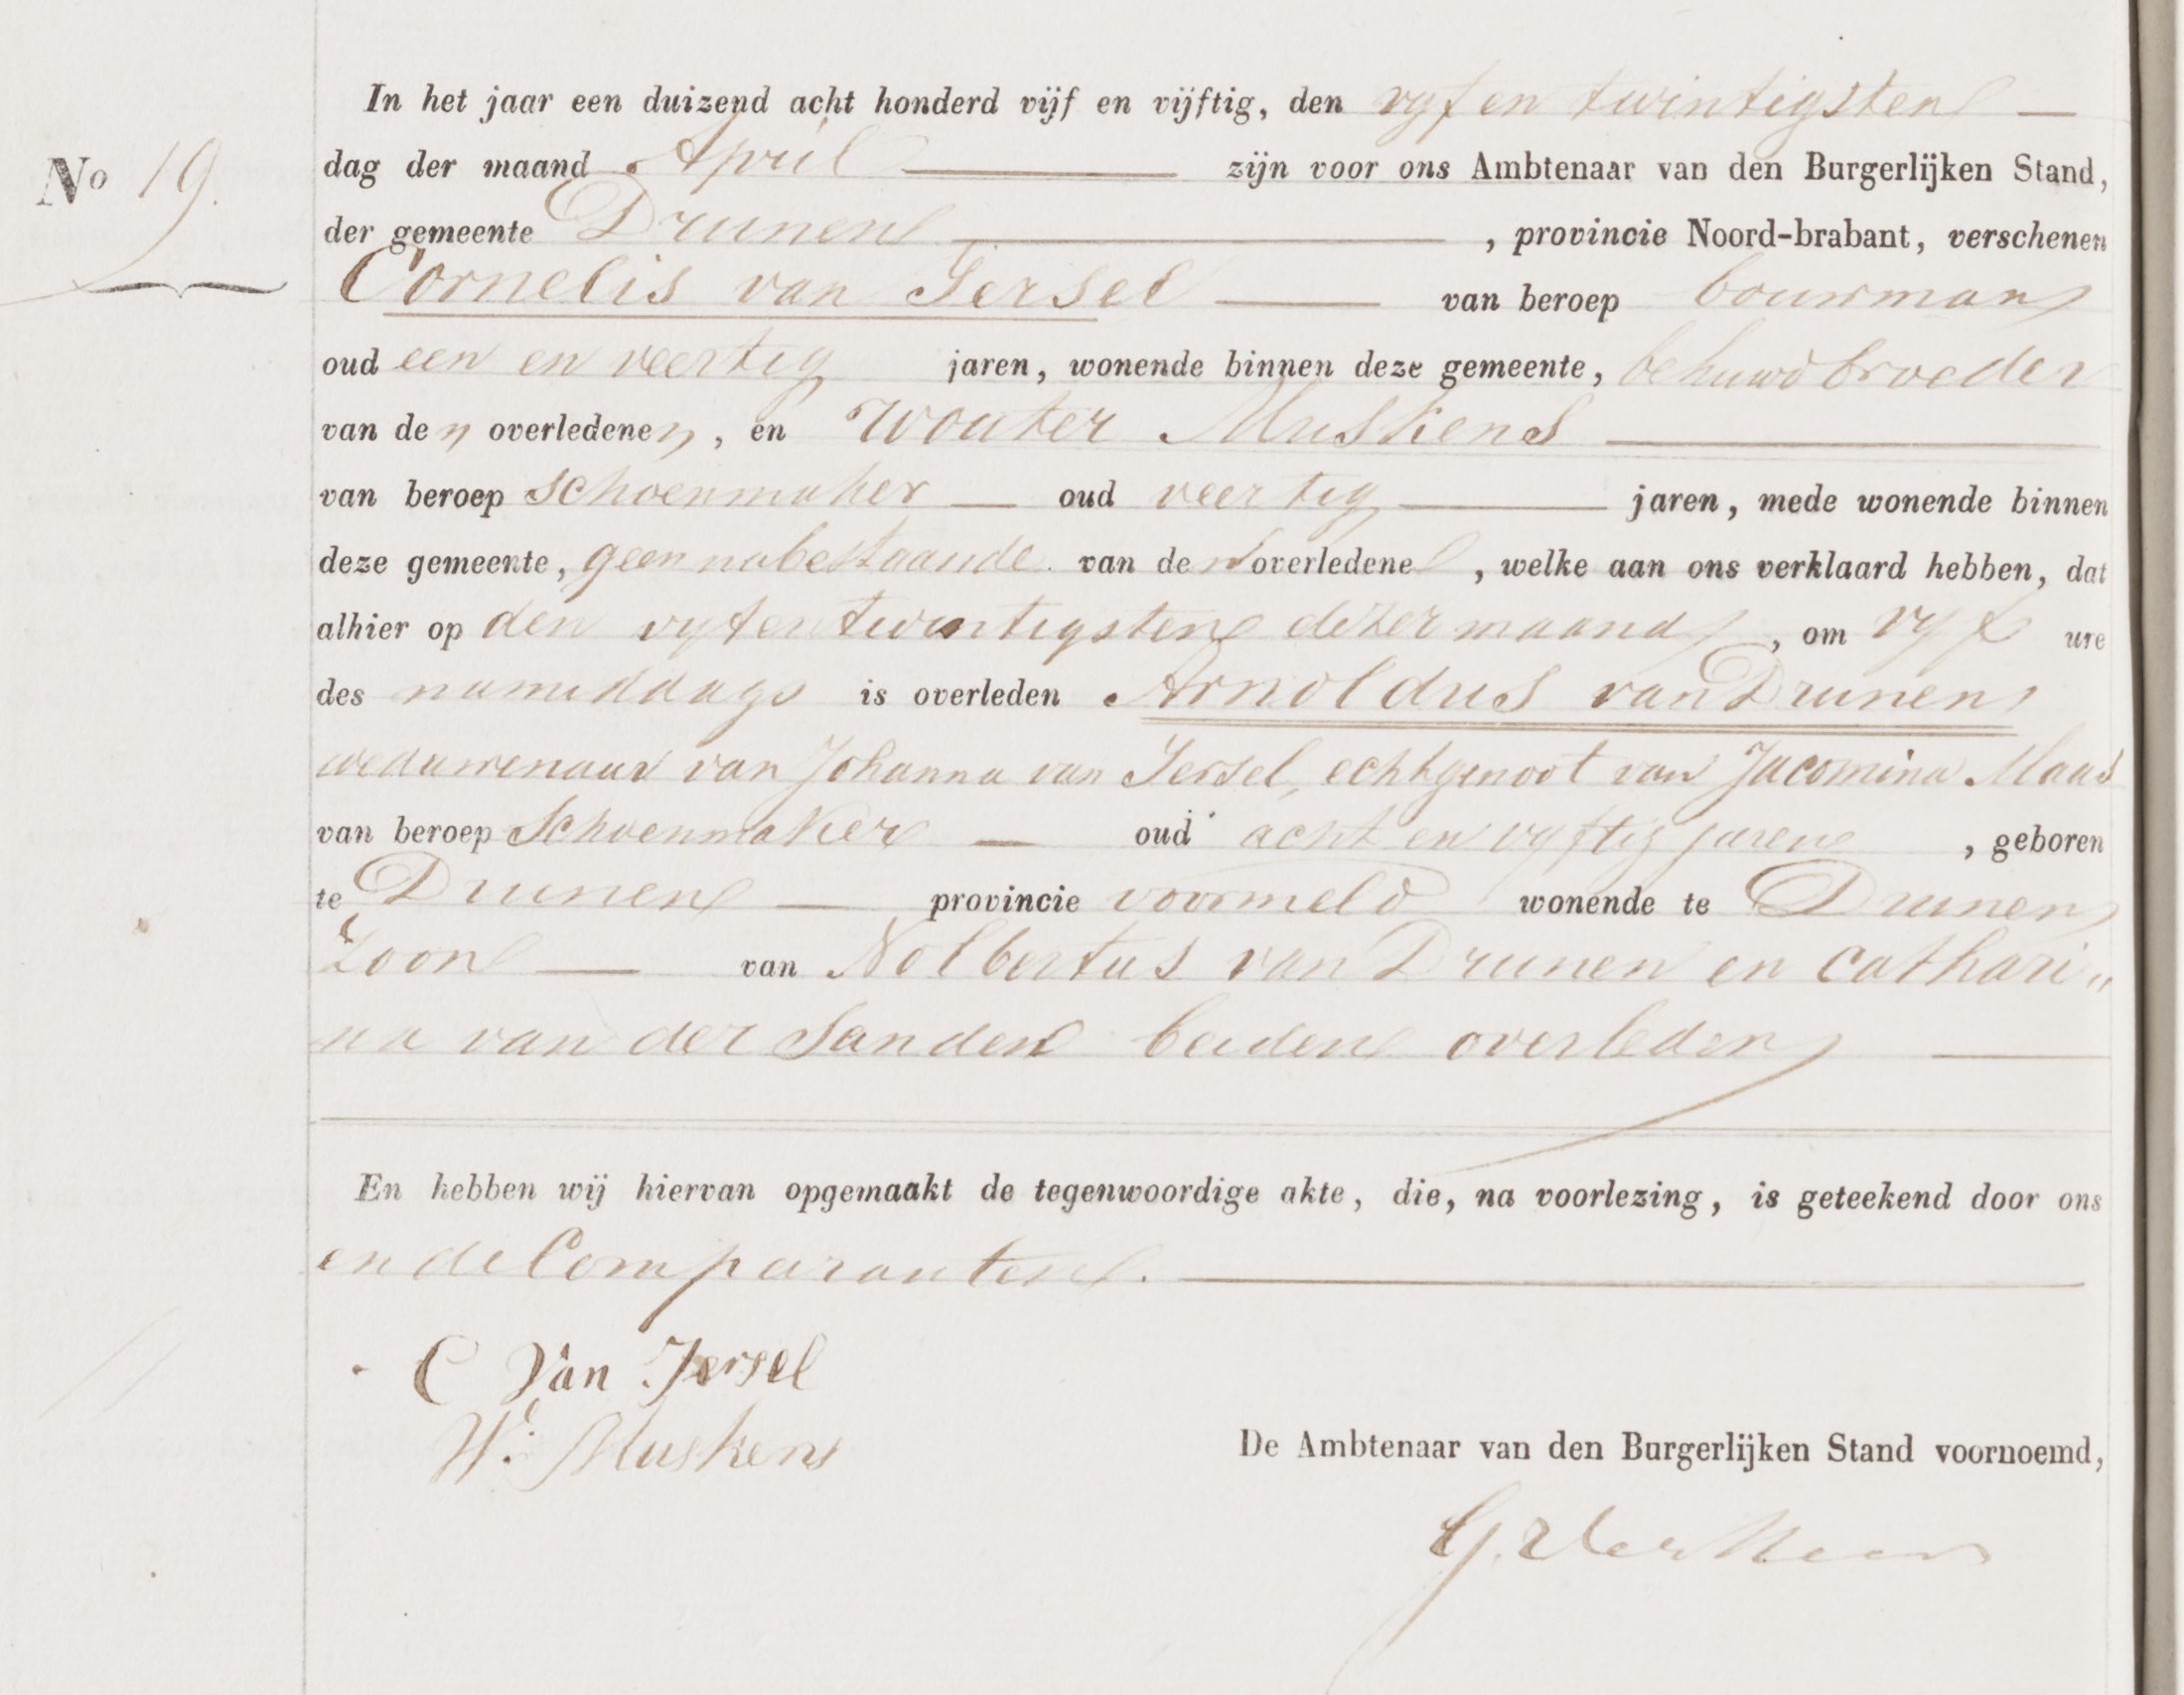 In het jaar een duizend acht honderd vijf en vijftig, den vyf en twintigsten
No 19.
dag der maand April zijn voor ons Ambtenaar van den Burgerlijken Stand,
der gemeente Drunen, provincie Noord-brabant, verschenen
Cornelis van Iersel van beroep bouwman
oud een en veertig jaren, wonende binnen deze gemeente, behuwd broeder
van den overledenen, en Wouter Muskens
van beroep schoenmaker oud veertig jaren, mede wonende binnen
deze gemeente, geen nabestaande van den overledene, welke aan ons verklaard hebben, dat
alhier op den vyf en twintigsten dezer maand, om vyf ure
des namiddags is overleden Arnoldus van Drunen
weduwenaar van Johanna van Iersel, echtgenoot van Jacomina Maas
van beroep Schoenmaker oud acht en vyftig jaren, geboren
te Drunen provincie voormeld wonende te Drunen
Zoon van Nolbertus van Drunen en Cathari„
na van der Sanden beiden overleden
En hebben wij hiervan opgemaakt de tegenwoordige akte, die, na voorlezing, is geteekend door ons
en de Comparanten.
C Van Iersel
W: Muskens
De Ambtenaar van den Burgerlijken Stand voornoemd,